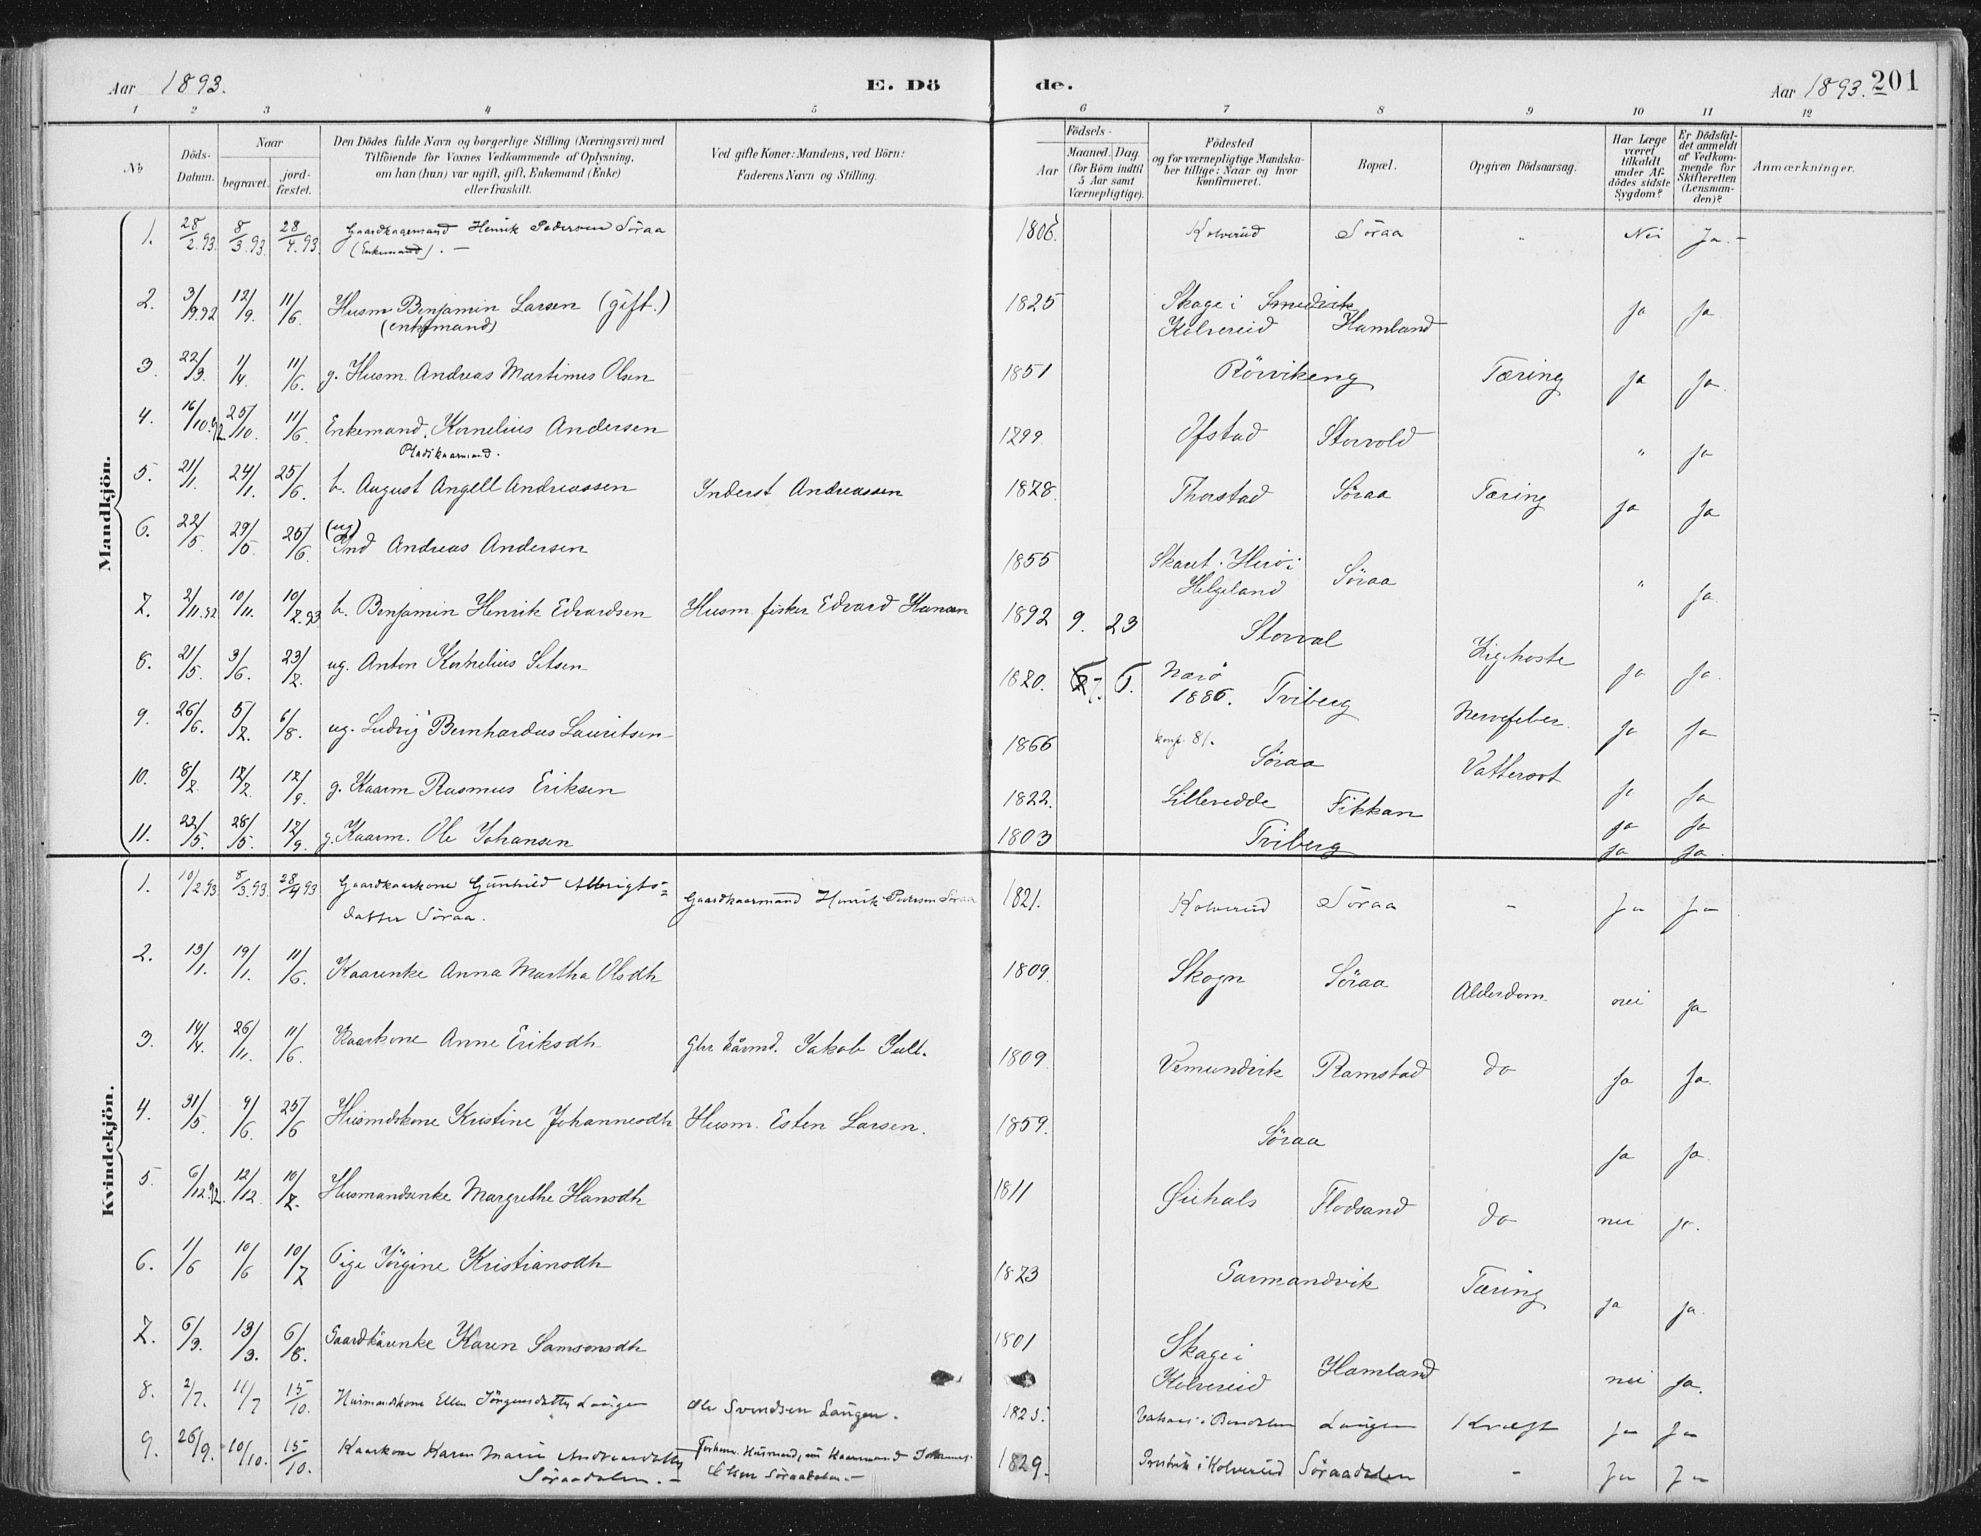 Aar 1893. E. Dö de. Aar 1893. 201
1 2 3 4 5 6 7 8 9 10 11 12
No
Döds-Datum.
Naar
begravet. jordfæstet.
Den Dödes fulde Navn og borgerlige Stilling (Næringsvei) med
Tilföiende for Voxnes Vedkommende af Oplysning,
om han (hun) var ugift, gift, Enkemand (Enke)
eller fraskilt.
Ved gifte Koner: Mandens, ved Börn:
Faderens Navn og Stilling.
Födsels-
Aar
Maaned. Dag.
(for Börn indtil
5 Aar samt
Værnepligtige).
Födested
og for værnepligtige Mandska-
ber tillige: Naar og hvor
konfirmeret.
Bopæl.
Opgiven Dödsaarsag.
Har Læge
været
tilkaldt
under Af-
dödes sidste
Sygdom?
Er Dödsfal-
det anmeldt
af Vedkom-
mende for
Skifteretten
(Lensman-
den)?
Anmærkninger.
Mandkjön.
1. 28/2.93. 8/3.93. 28/4.93. Henrik Pedersen Söraa 1806 Kolvereid Söraa " Nei Ja. -
(Enkemand). -
2. 3/9.92 12/9. 11/6. Husm Benjamin Larsen (gift.) 1825 Skage i Smedvik Ja Ja
(enkemand) Kolvereid Hamland
3. 22/3. 1/4. 11/6. g. Husm. Andreas Martinus Olsen 1851 Rörvikeng Tæring Ja Ja
4. 16/10.92. 25/10. 11/6. Enkemand. Kornelius Andersen 1799 Ofstad Storvold " Ja
5. 21/1. 24/1. 25/6. b. August Angell Andreassen Inderst Andreassen 1878. Thorstad Søraa Tæring Ja Ja
6. 22/5. 29/5. 25/6. (ug) Ind Andreas Andersen 1855 Skaret. Herö i " Ja
Helgeland Søraa
7. 2/11.92 10/11. 10/7.93 b. Benjamin Henrik Edvardsen Husm. fisker Edvard Hansen 1892 9. 23 Storval Kighoste Ja Ja.
8. 21/5. 3/6. 23/7. ug. Anton Kornelius 1870. 7. 6. Nærö
1886. Tviberg Nervefeber. Ja Ja
9. 26/6. 5/7. 6/8. ug. Ludvig Bernhardus Lauritsen 1866 konf. 81. Søraa Vattersot Ja Ja
10. 8/7. 12/7. 17/9. g. Kaarm Rasmus Eriksen 1822. Lilleredde Fikkan Ja Ja
11. 22/5. 28/5. 17/9. g. Kaarm. Ole Johansen 1803 Tviberg Ja Ja.
Kvindekjön.
1. 10/2.93 8/3.93. 28/4.93 Gaardkaarkone Gunhild Albrigts= Gaardkaarmand Henrik Pedersen Söraa 1821. Kolvereid Söraa - Ja Ja
datter Söraa.
2. 13/1. 19/1. 11/6. Kaarenke Anna Martha Olsdtr 1809. Skogn Søraa Alderdom nei Ja
3. 14/4. 26/4. 11/6. Kaarkone Anne Eriksdtr Jakob Jull. 1809. Vemundvik Ramstad do Ja Ja.
4. 31/5. 9/6. 25/6 Husmdskone Kristine Johannesdtr Husm. Esten Larsen. 1859. Søraa Ja Ja.
5. 6/12.92. 12/12. 10/7. Husmandsenke Margrethe Hansdtr 1811 Øiehals Flodsand do nei Ja.
6. 1/6 10/6 10/7 Pige Jörgine Kristiansdtr 1873 Garmandvik Tæring Ja Ja.
7. 6/3. 13/3. 6/8. Gaardkårenke Karen Samsonsdtr 1801 Skage i
Kolvereid Hamland nei Ja.
8. 2/7. 11/7 15/10. Husmandskone Ellen Jörgensdatter Laugen Ole Svendsen Laugen. 1825. Laugen Kræft Ja Ja
9. 26/9. 10/10. 15/10. Kaarkone Karen Marie Andreasdatter Forhenv. Husmand, nu Kaarmand Johannes 1829. i Kolvereid Söraadalen - Ja Ja
Söraadalen. - Olsen Söraadalen. -